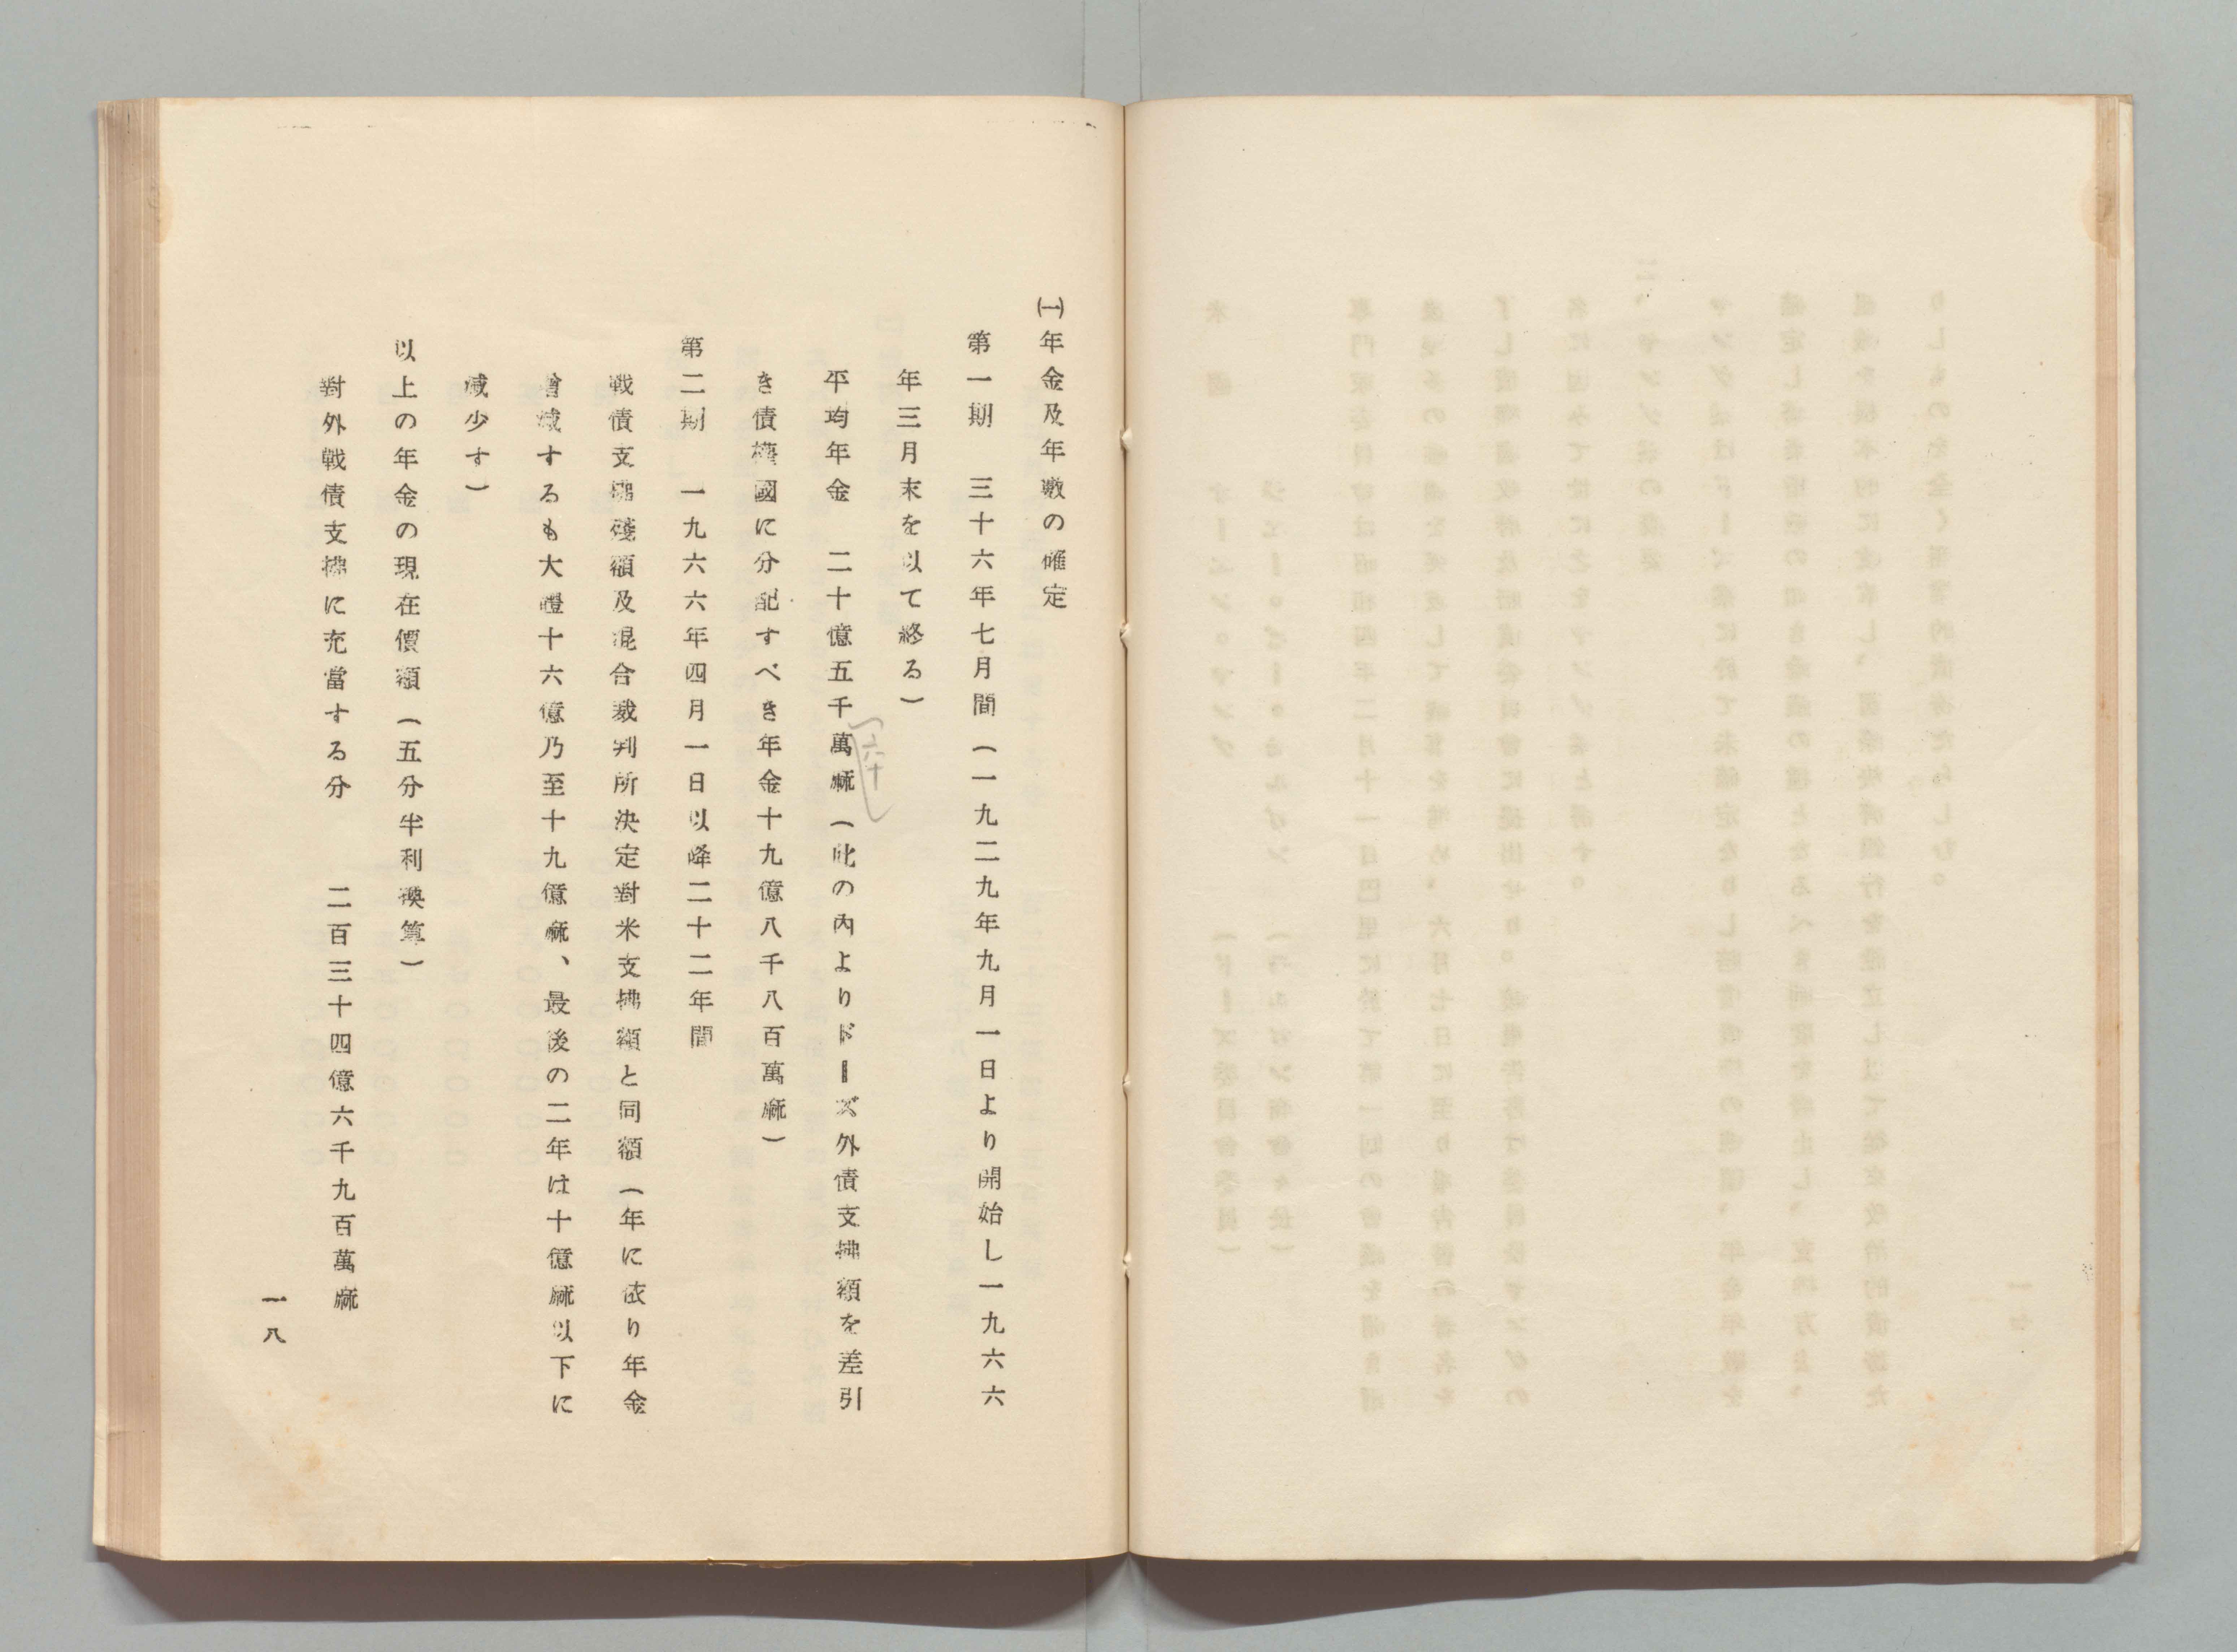 ㈠年金及年數の確定
第一期　三十六年七月間（一九二九年九月一日より開始し一九六六
年三月末を以て終る）
平均年金　二十億五千萬麻（此の內よりドーズ外債支拂額を差引
き債權國に分配すべき年金十九億八千八百萬麻）
第二期　一九六六年四月一日以降二十二年間
戰債支拂殘額及混合裁判所決定對米支拂額と同額（年に依り年金
增減するも大體十六億乃至十九億麻、最後の二年は十億麻以下に
減少す）
以上の年金の現在價額（五分半利換算）
對外戰債支拂に充當する分　二百三十四億六千九百萬麻
一八